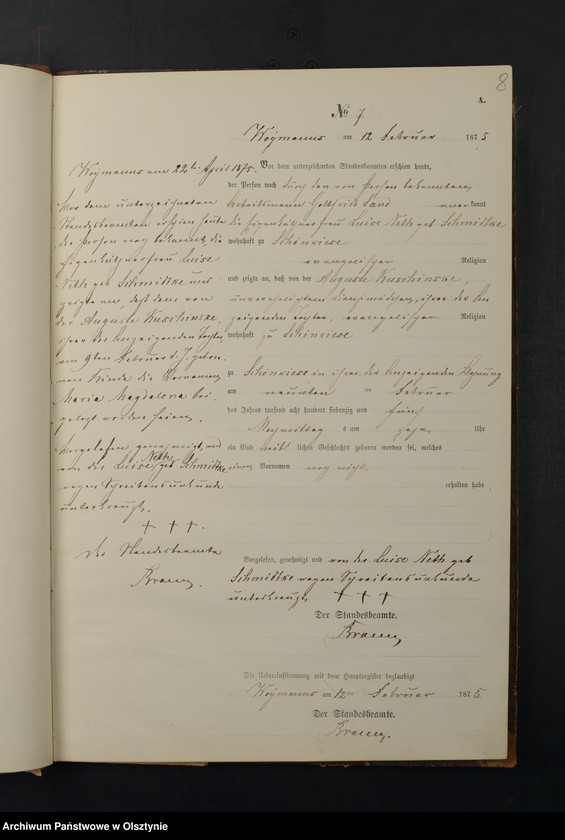 8
A.
No 7
Woymanns am 12 Februar 1875
Vor dem unterzeichneten Standesbeamten erschien heute,
der Person nach durch den von Person bekannten
Arbeitsmann Gottfried Sand anerkannt
die Eigenkäthnerfrau Luise Neth geb Schmidtke
wohnhaft zu Schönriese
evangelischer Religion
und zeigte an, daß von der Auguste Kuschinske,
unverehelichten Dienstmädchen, ihrer der An
zeigenden Tochter, evangelischer Religion
wohnhaft zu Schönriese
zu Schönriese in ihrer der Anzeigenden Wohnung
am neunten ten Februar
des Jahres tausend acht hundert siebenzig und fünf
Nachmittag s um zehn Uhr
ein Kind weib lichen Geschlechts geboren worden sei, welches
einen Vornamen noch nicht
erhalten habe
Vorgelesen, genehmigt und von der Luise Neth geb
Schmidtke wegen Schreibensunkunde
unterkreuzt + + +
Der Standesbeamte.
Die Uebereinstimmung mit dem Hauptregister beglaubigt
Woymanns am 12ten Februar 1875
Der Standesbeamte.
Woymanns am 24ten April 1875.
Vor dem unterzeichneten
Standesbeamten erschien heute
der Person nach bekannt, die
Eigenkäthnerfrau Luise
Neth geb Schmidtke und
zeigte an, daß dem von
der Auguste Kuschinske,
ihrer der Anzeigenden Tochter,
am 9ten Februar d. J. gebore
nen Kinde die Vornamen
Maria Magdalena bei
gelegt worden seien.
Vorgelesen, genehmigt und
von der Luise Neth geb Schmidtke
wegen Schreibensunkunde
unterkreuzt.
+ + +.
Der Standesbeamte
Archiwum Państwowe w Olsztynie